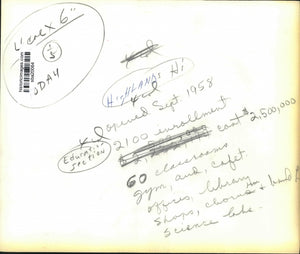 1 col x 6"
ODAY
HIGHLANDS Hi
opened Sept 1958
2100 enrollment
cost $2,500,000
EDUCATION SECTION
60 classrooms
gym, aud, cafet
offices, library
shops, chorus + band
science labs.